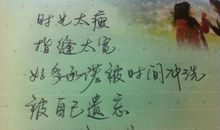 时光太瘦
指缝太宽
好多承诺被时间冲洗
被自己遗忘